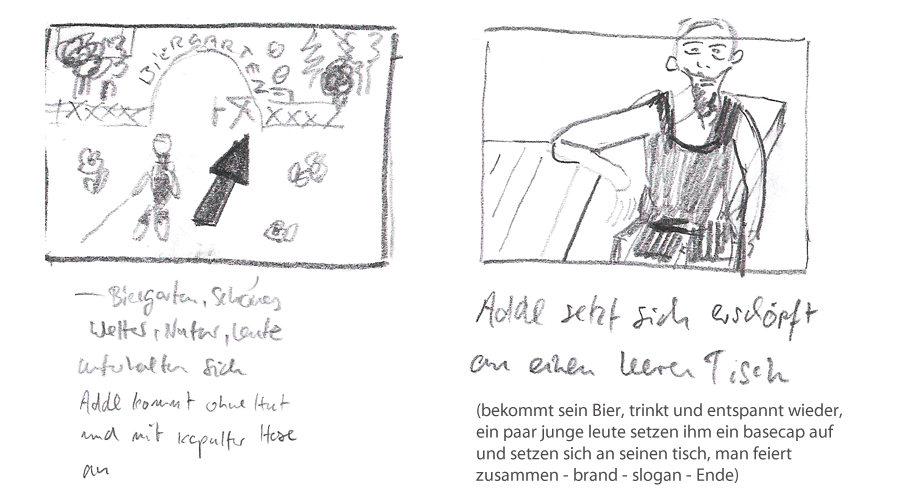 BIERGARTEN
— Biergarten, Schönes
Wetter, Natur, Leute
unterhalten sich
Adde kommt ohne Hut
und mit kaputter Hose
an
Adde setzt sich erschöpft
an einen leeren Tisch
(bekommt sein Bier, trinkt und entspannt wieder,
ein paar junge leute setzen ihm ein basecap auf
und setzen sich an seinen tisch, man feiert
zusammen - brand - slogan - Ende)